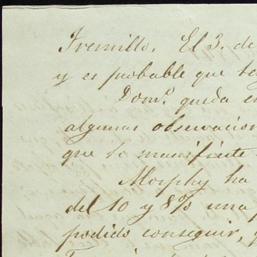 Tremillo. El 3. de
y es probable que
Domº queda en
algunas observacion
que le manifieste
Morphy ha
del 10 y 8% una
podido conseguir,